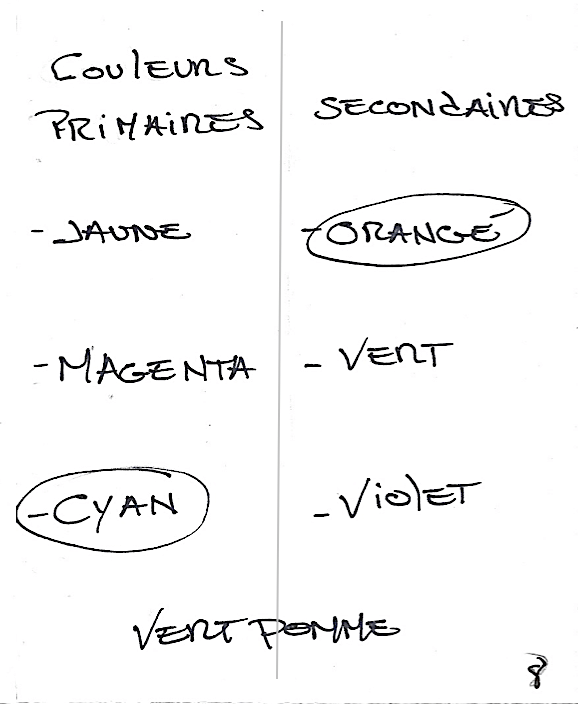 COULEURS
PRIMAIRES
- JAUNE
- MAGENTA
- CYAN
SECONDAIRES
- ORANGÉ
- VERT
- VIOLET
VERT POMME
8